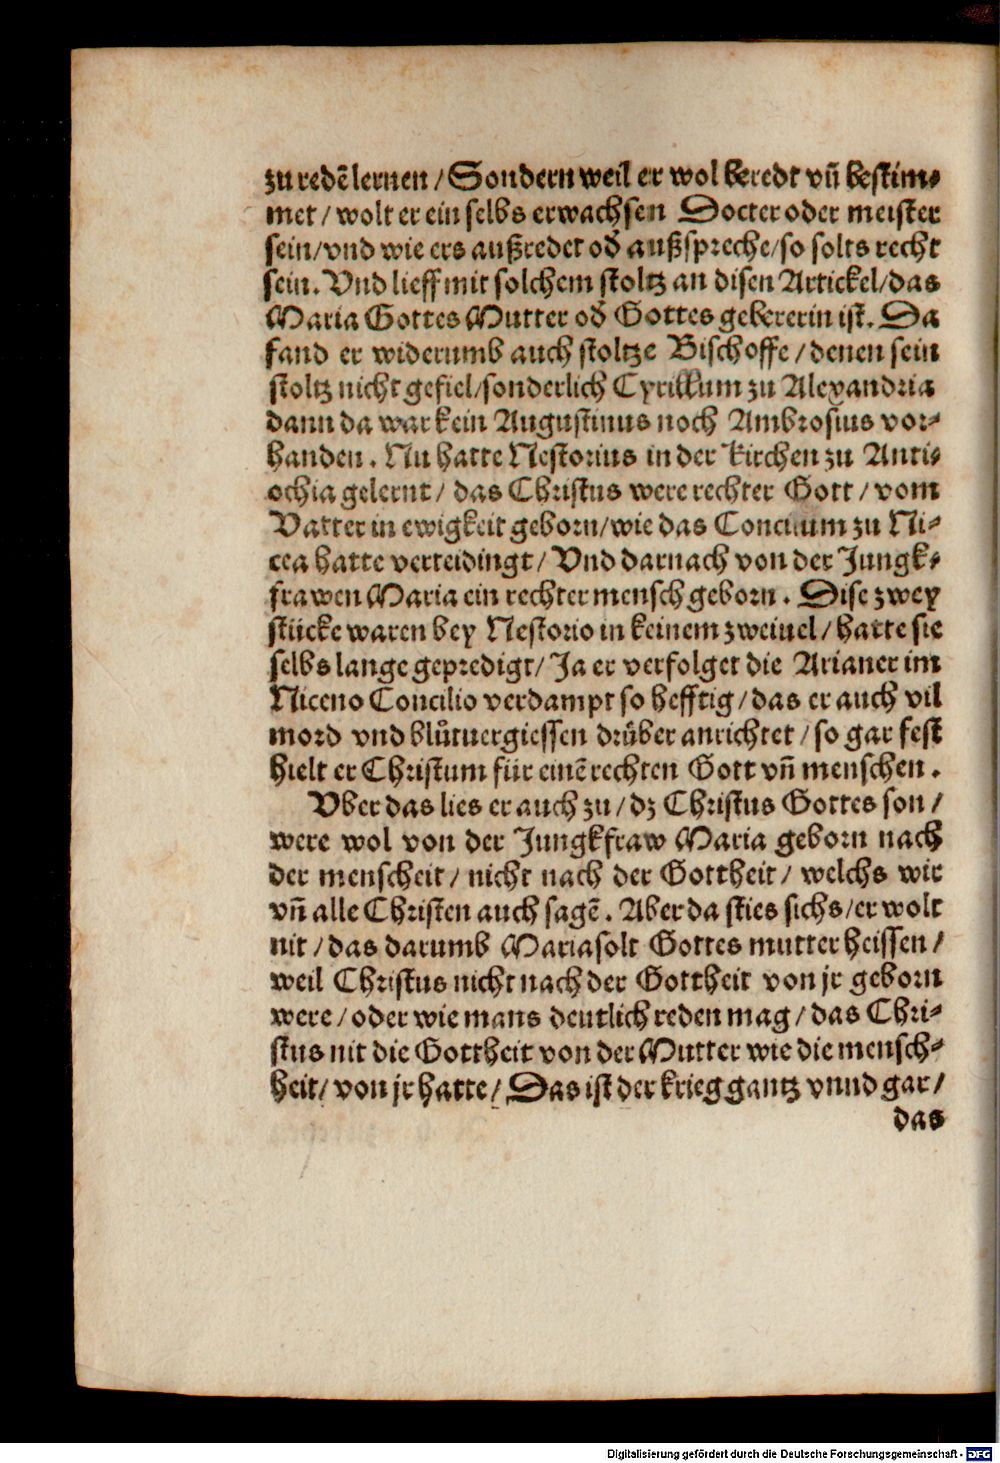 zu redē lernen / Sondern weil er wol beredt vn̄ bestim⸗
met / wolt er ein selbs erwachsen Docter oder meister
sein / vnd wie ers außredet od̕ außspreche / so solts recht
sein. Vnd lieff mit solchem stoltz an disen Artickel / das
Maria Gottes Mutter od̕ Gottes gebererin ist. Da
fand er widerumb auch stoltze Bischoffe / denen sein
stoltz nicht gefiel / sonderlich Cyrillum zu Alexandria
dann da war kein Augustinus noch Ambrosius vor⸗
handen. Nu hatte Nestorius in der kirchen zu Anti⸗
ochia gelernt / das Christus were rechter Gott / vom
Vatter in ewigkeit geborn / wie das Concilium zu Ni⸗
cea hatte verteidingt / Vnd darnach von der Jungk⸗
frawen Maria ein rechter mensch geborn. Dise zwey
stücke waren bey Nestorio in keinem zweiuel / hatte sie
selbs lange gepredigt / Ja er verfolget die Arianer im
Niceno Concilio verdampt so hefftig / das er auch vil
mord vnd blůtuergiessen drüber anrichtet / so gar fest
hielt er Christum für einē rechten Gott vn̄ menschen.
Vber das lies er auch zu / dz Christus Gottes son /
were wol von der Jungkfraw Maria geborn nach
der menscheit / nicht nach der Gottheit / welchs wir
vn̄ alle Christen auch sagē. Aber da sties sichs / er wolt
nit / das darumb Maria solt Gottes mutter heissen /
weil Christus nicht nach der Gottheit von jr geborn
were / oder wie mans deutlich reden mag / das Chri⸗
stus nit die Gottheit von der Mutter wie die mensch⸗
heit / von jr hatte / Das ist der krieg gantz vnnd gar /
das
Digitalisierung gefördert durch die Deutsche Forschungsgemeinschaft - DFG